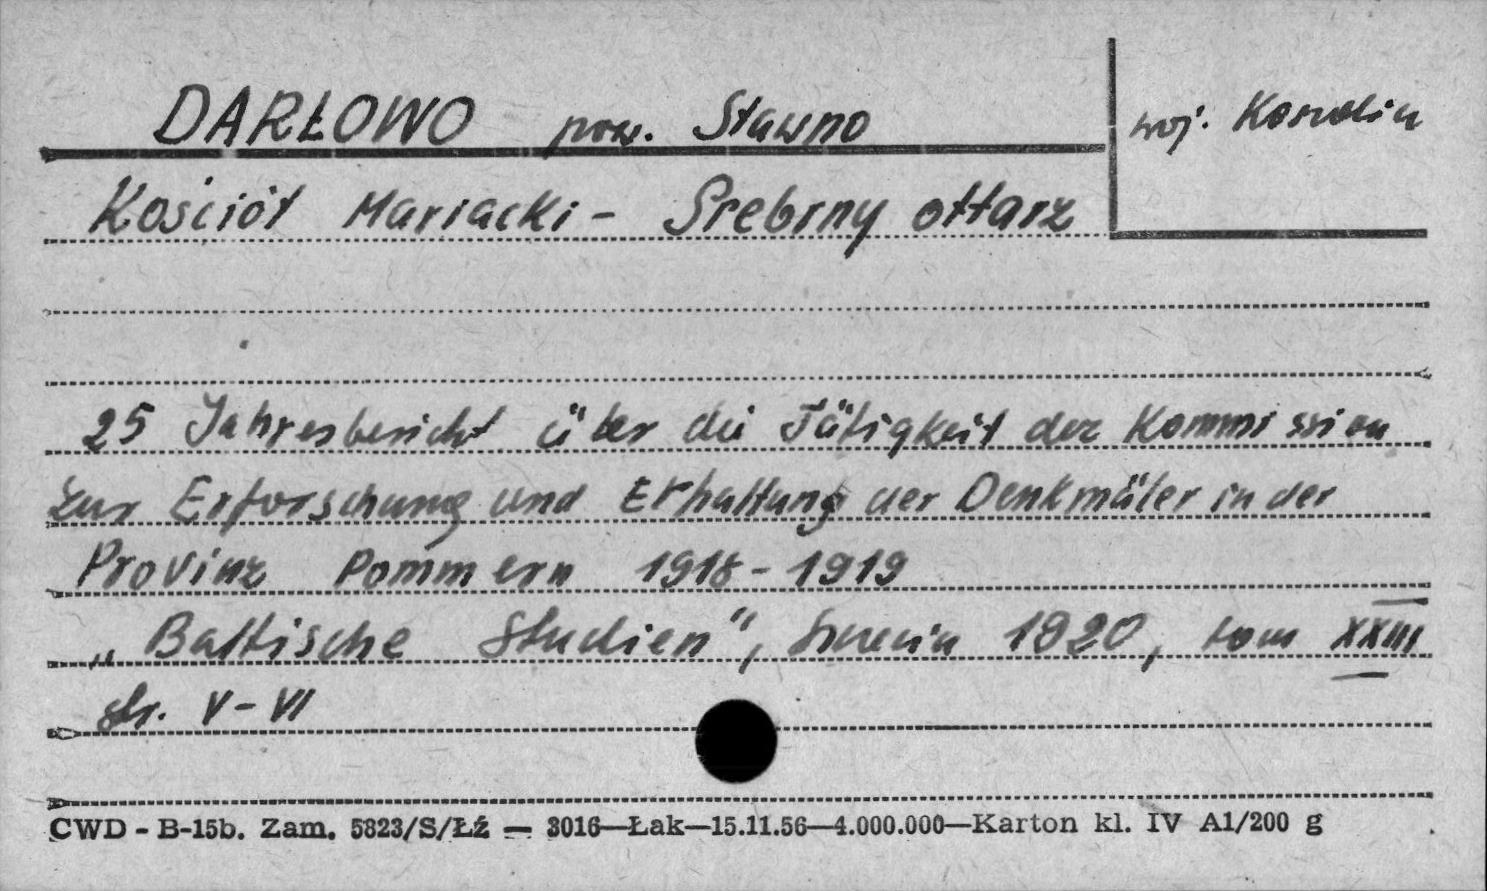 DARŁOWO pow. Sławno woj. Koszalin
Kościół Mariacki - Srebrny ołtarz
25 Jahresbericht über die Tätigkeit der Kommission
zur Erforschung und Erhaltung der Denkmäler in der
Provinz Pommern 1918-1919
„Baltische Studien", Szczecin 1920, tom XXIII
str. V-VI
CWD - B-15b. Zam. 5823/S/Łź — 3016—Łak—15.11.56—4.000.000—Karton kl. IV A1/200 g